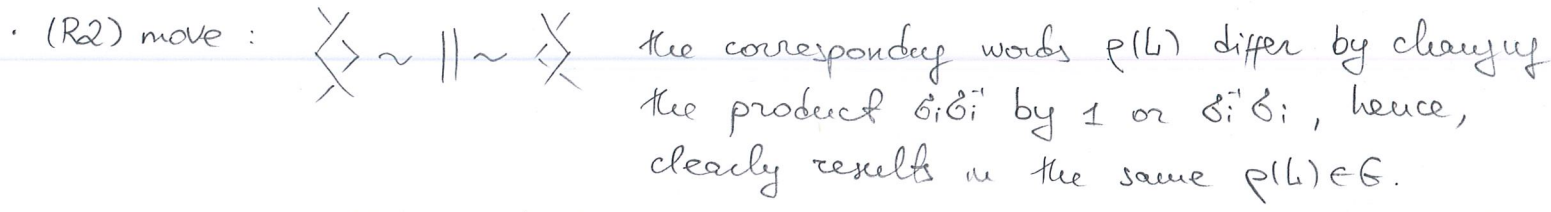 · (R2) move : ~ || ~ the corresponding words ρ(L) differ by changing
the product σᵢσᵢ⁻¹ by 1 or σᵢ⁻¹σᵢ, hence,
clearly results in the same ρ(L)∈G.